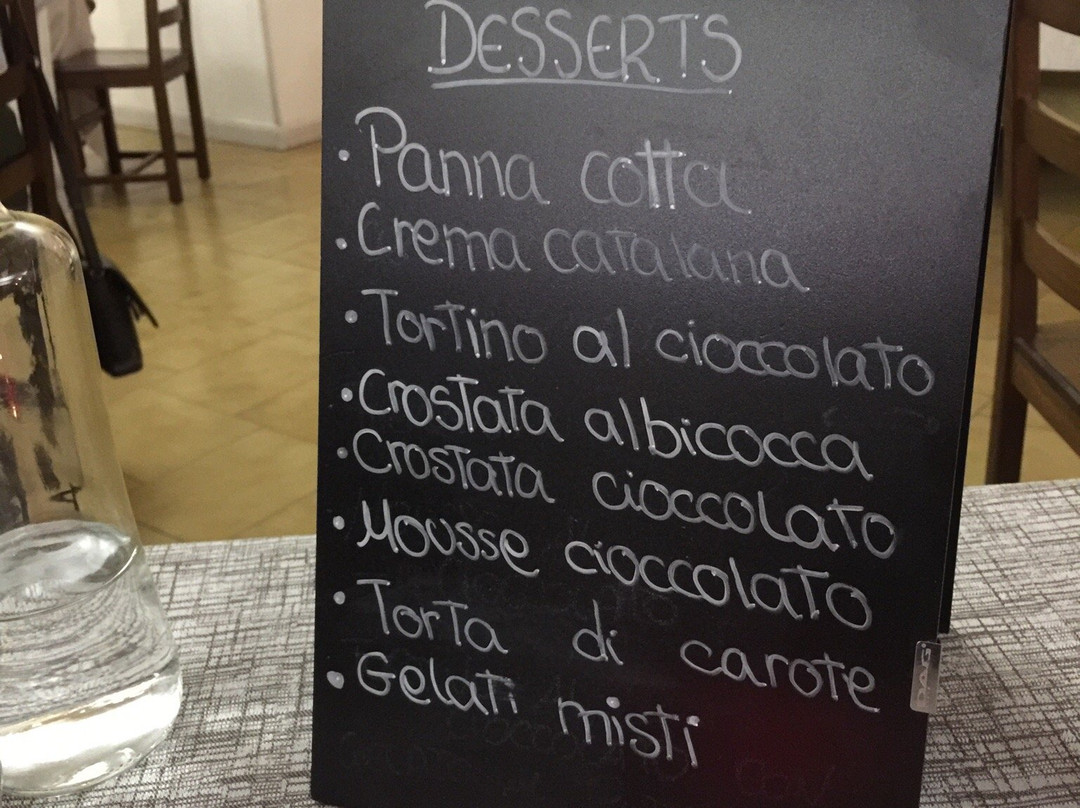 DESSERTS
• Panna cotta
• Crema catalana
• Tortino al cioccolato
• Crostata albicocca
• Crostata cioccolato
• Mousse cioccolato
• Torta di carote
• Gelati misti